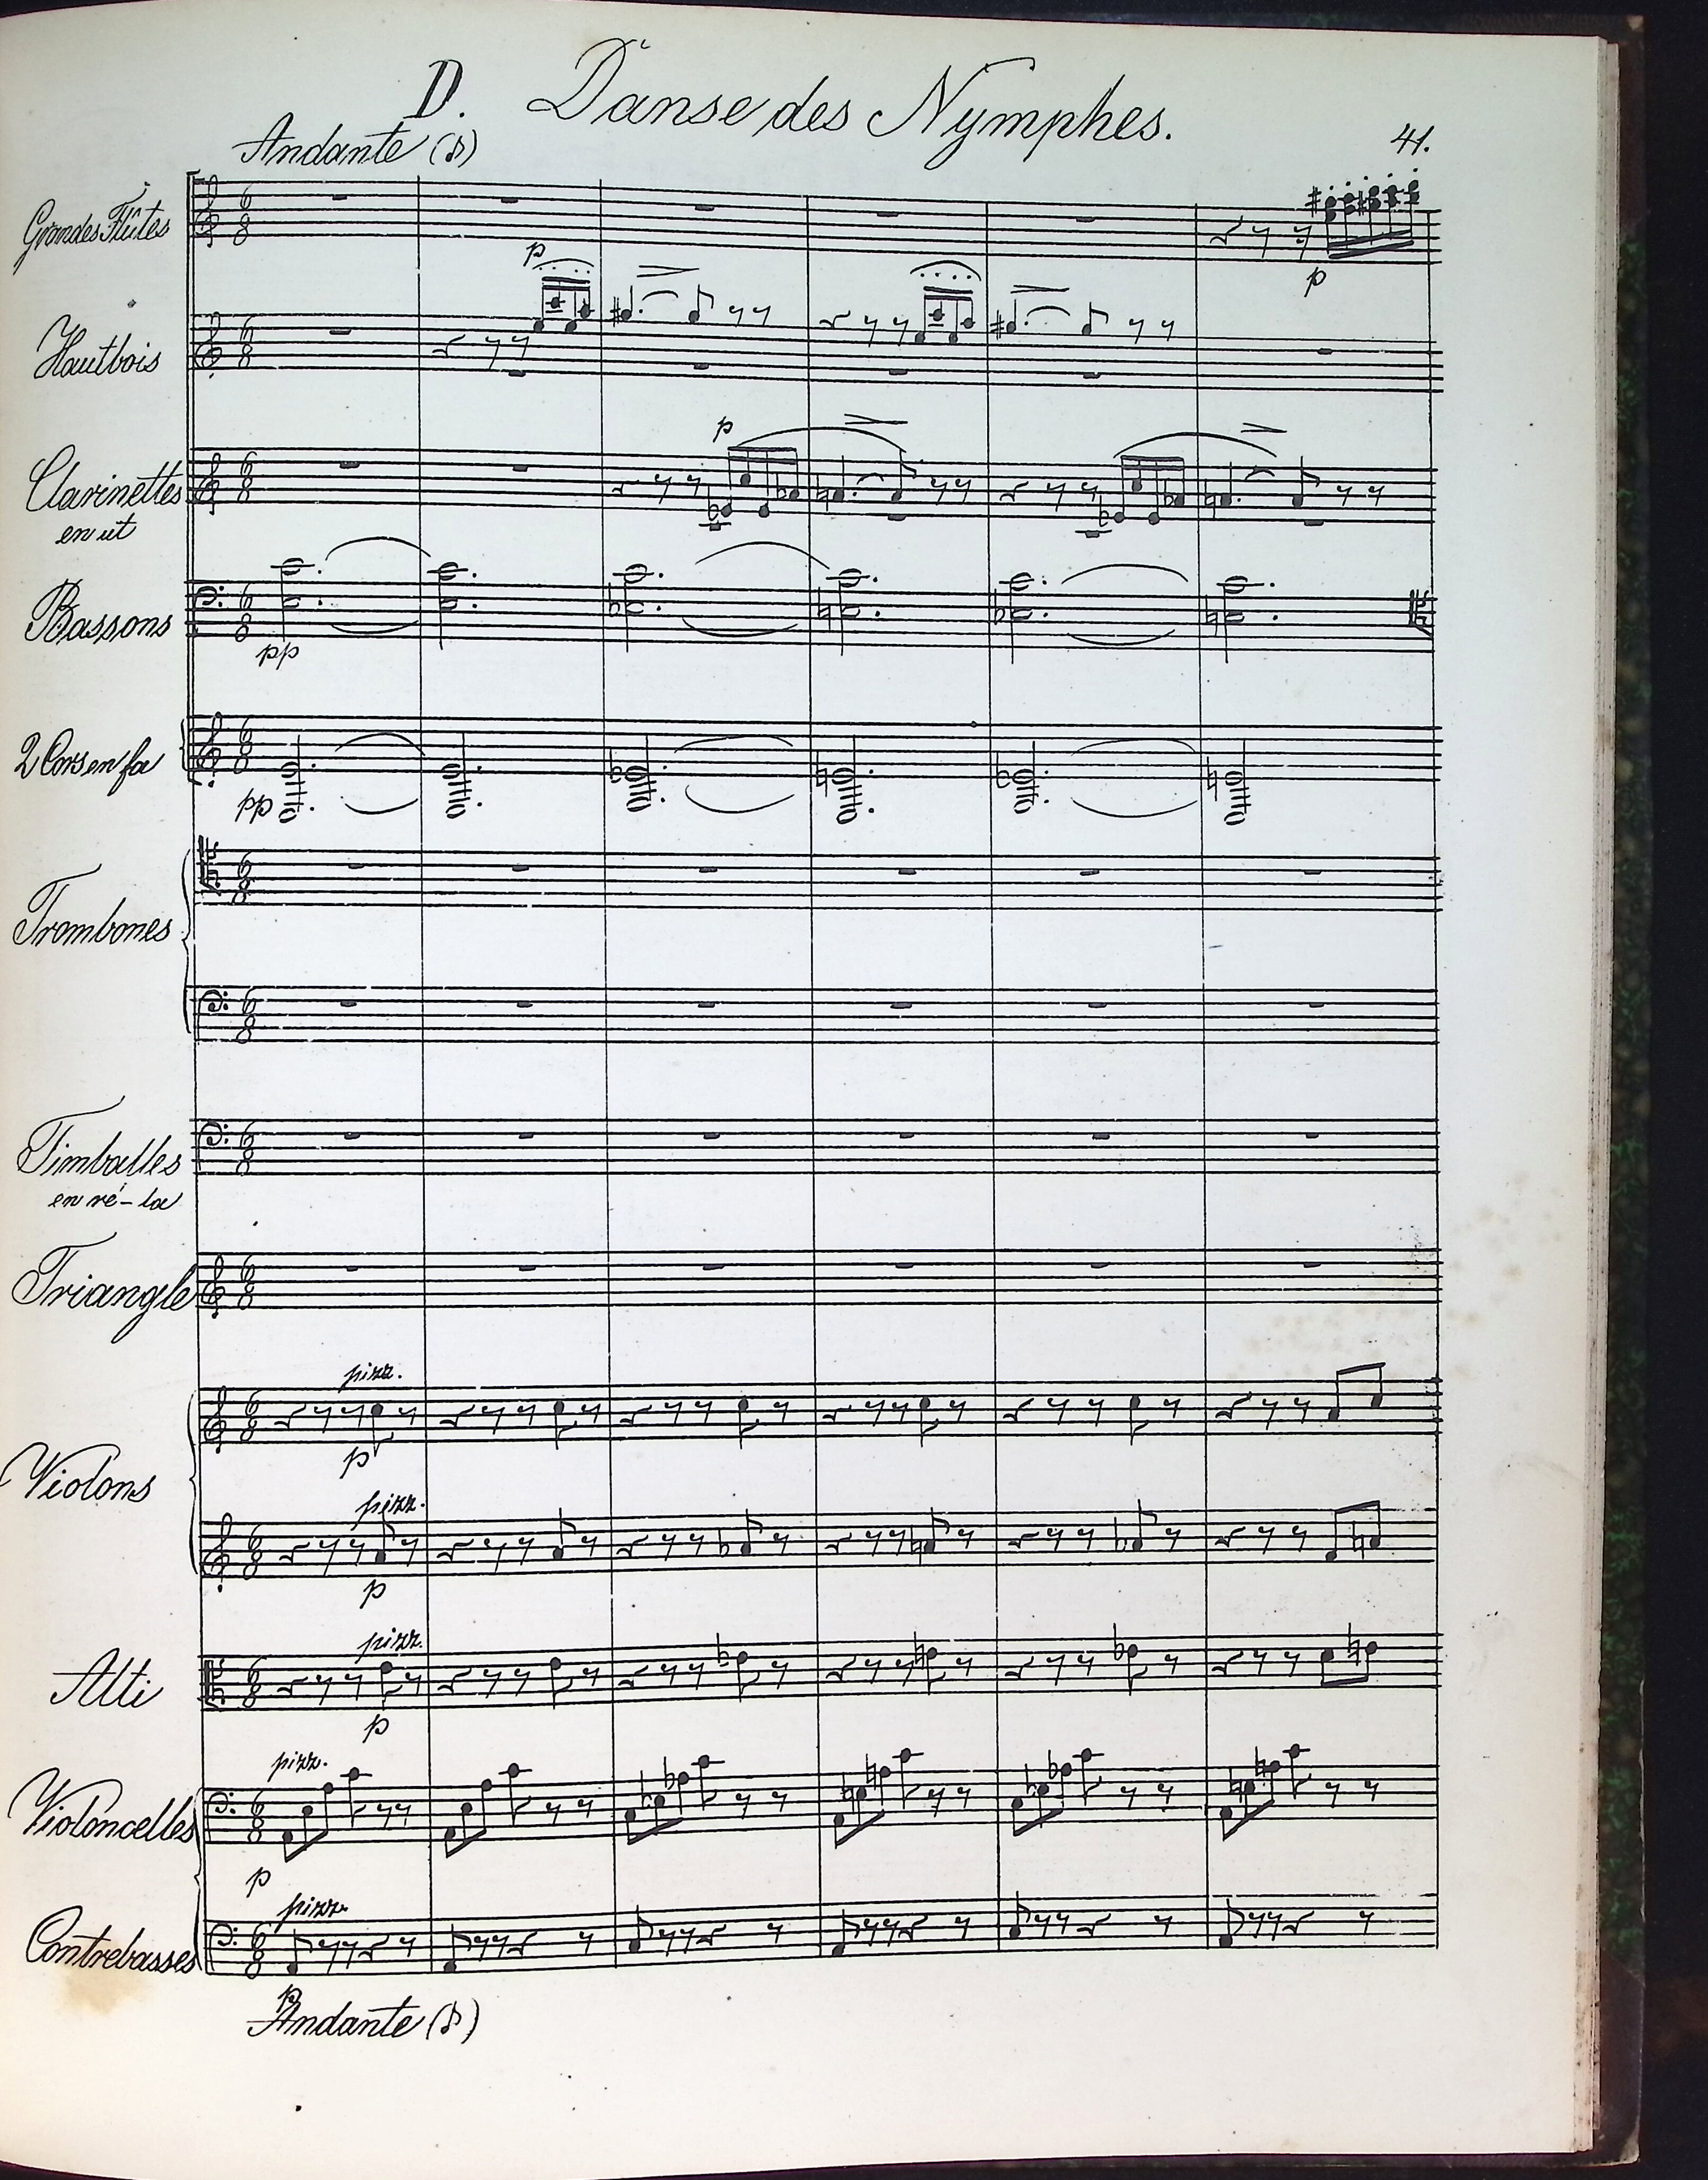 D. Danse des Nymphes.
41.
Andante (♪)
Grandes Flûtes
p
p
Hautbois
p
Clarinettes
en ut
Bassons
pp
2 Cors en fa
pp
Trombones
Timballes
en ré-la
Triangle
pizz.
p
Violons
pizz.
p
pizz.
Alti
p
pizz.
Violoncelles
p
pizz.
Contrebasses
p
Andante (♪)